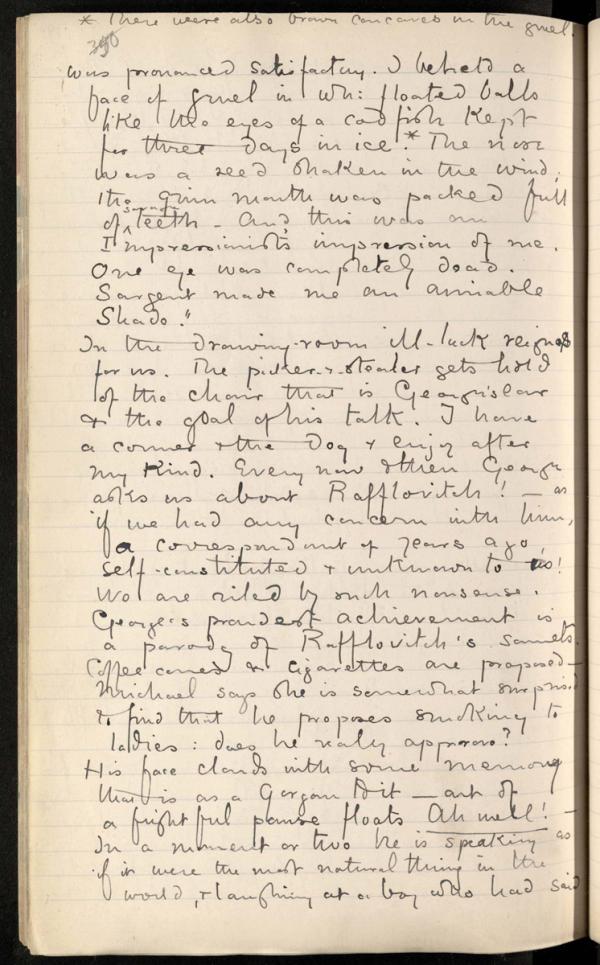 * There were also brown concaves in the gruel.
350
was pronounced satisfactory. I beheld a
face of gruel in wh: floated balls
like the eyes of a cod fish kept
for three days in ice.* The nose
was a reed shaken in the wind,
the grim mouth was packed full
of teeth - And, this was an
Impressionist's impression of me.
One eye was completely dead.
Sargent made me an amiable
Shade."
In the drawing-room ill-luck reigns
for us. The picker-&-stealer gets hold
of the chair that is George's lair
& the goal of his talk. I have
a corner & the Dog & enjoy after
my kind. Every now & then George
asks us about Rafflovitch! — as
if we had any concern with him,
a correspondent of years ago,
self-constituted & unknown to us!
We are riled by such nonsense.
George's proudest achievement is
a parody of Rafflovitch's sonnets.
Coffee comes & cigarettes are proposed —
Michael says she is somewhat surprised
to find that he proposes smoking to
ladies: does he really approve?
His face clouds with some memory
that is as a Gorgon to it — out of
a frightful pause floats Ah well! —
In a moment or two he is speaking as
if it were the most natural thing in the
world, & laughing at a boy who had said